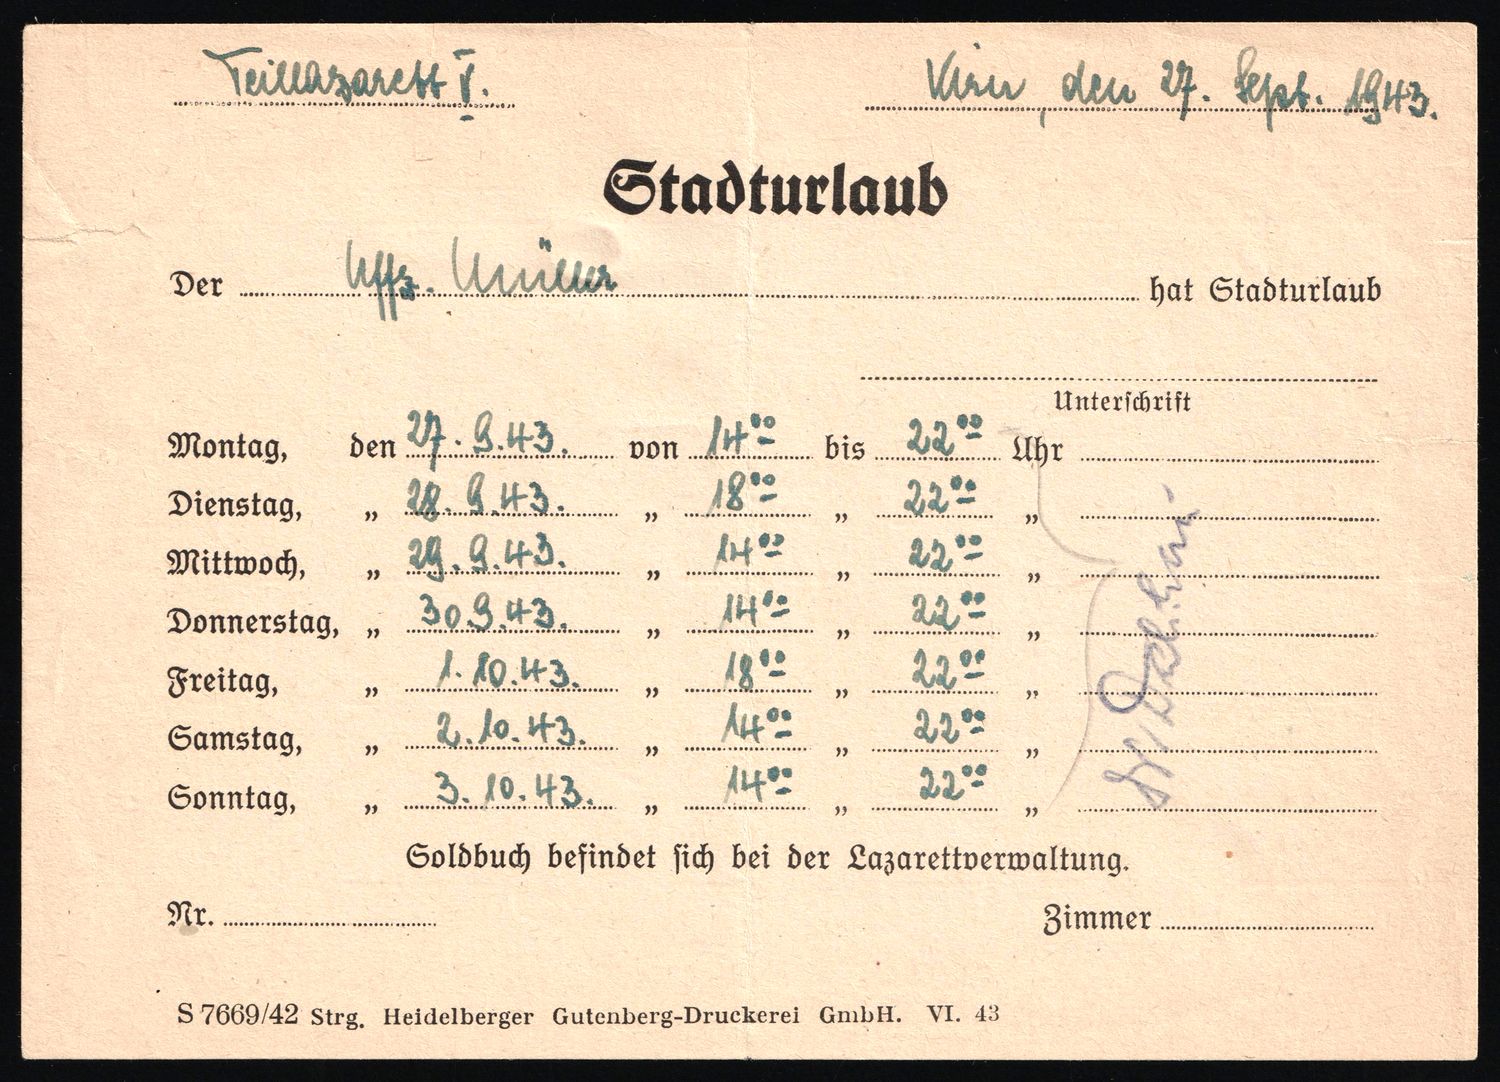 Teillazarett V.
Kirn, den 27. Sept. 1943.
Stadturlaub
Der Uffz. Müller hat Stadturlaub
Unterschrift
Montag, den 27. 9. 43. von 14⁰⁰ bis 22⁰⁰ Uhr
Dienstag, „ 28. 9. 43. „ 18⁰⁰ „ 22⁰⁰ „
Mittwoch, „ 29. 9. 43. „ 14⁰⁰ „ 22⁰⁰ „
Donnerstag, „ 30. 9. 43. „ 14⁰⁰ „ 22⁰⁰ „
Freitag, „ 1. 10. 43. „ 18⁰⁰ „ 22⁰⁰ „
Samstag, „ 2. 10. 43. „ 14⁰⁰ „ 22⁰⁰ „
Sonntag, „ 3. 10. 43. „ 14⁰⁰ „ 22⁰⁰ „
Soldbuch befindet sich bei der Lazarettverwaltung.
Nr. Zimmer
S 7669/42 Strg. Heidelberger Gutenberg-Druckerei GmbH. VI. 43